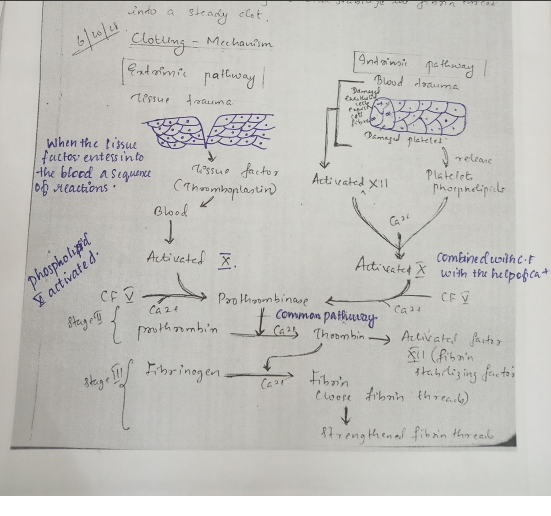 into a steady clot.
6/10/21
Clotting - Mechanism
Extrinsic pathway
Tissue trauma
When the tissue
factor enters into
the blood a sequence
of reactions.
Tissue factor
(Thromboplastin)
Blood
phospholipid
X activated.
Activated X.
CF V
Ca2+
Prothrombinase
Intrinsic pathway
Blood trauma
Damaged
Damaged platelet
release
Activated XII
Platelet
phospholipids
Ca2+
Activated X
combined with C.F
with the help of ca+
CF V
Ca2+
Common pathway
Stage II
prothrombin
Ca2+
Thrombin
Activated factor
XII (fibrin
stabilizing factor
Stage III
Fibrinogen
Ca2+
Fibrin
(loose fibrin threads)
Strengthened fibrin threads